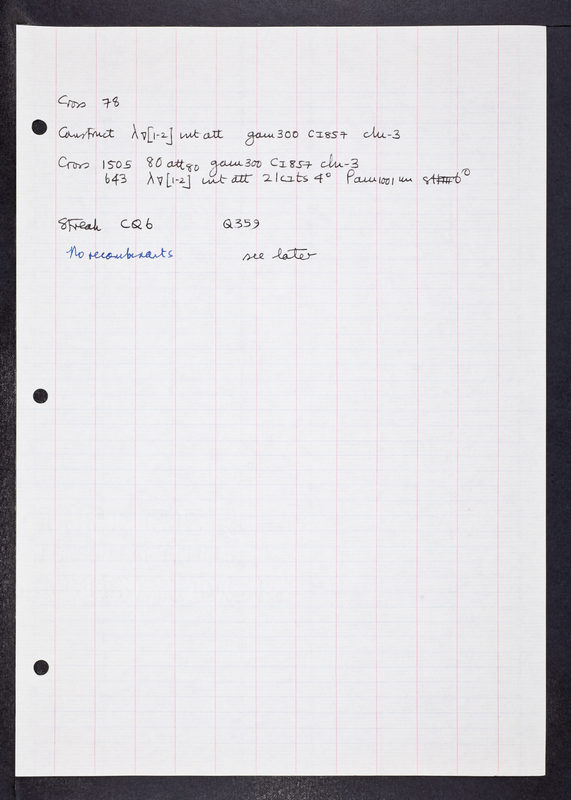 Cross 78
Construct λ∇[1-2] int att gam300 CI857 chi-3
Cross 1505 80 att80 gam300 CI857 chi-3
643 λ∇[1-2] int att 21cIts 4° Pam1001 in 6°
Streak CQ6 Q359
No recombinants see later